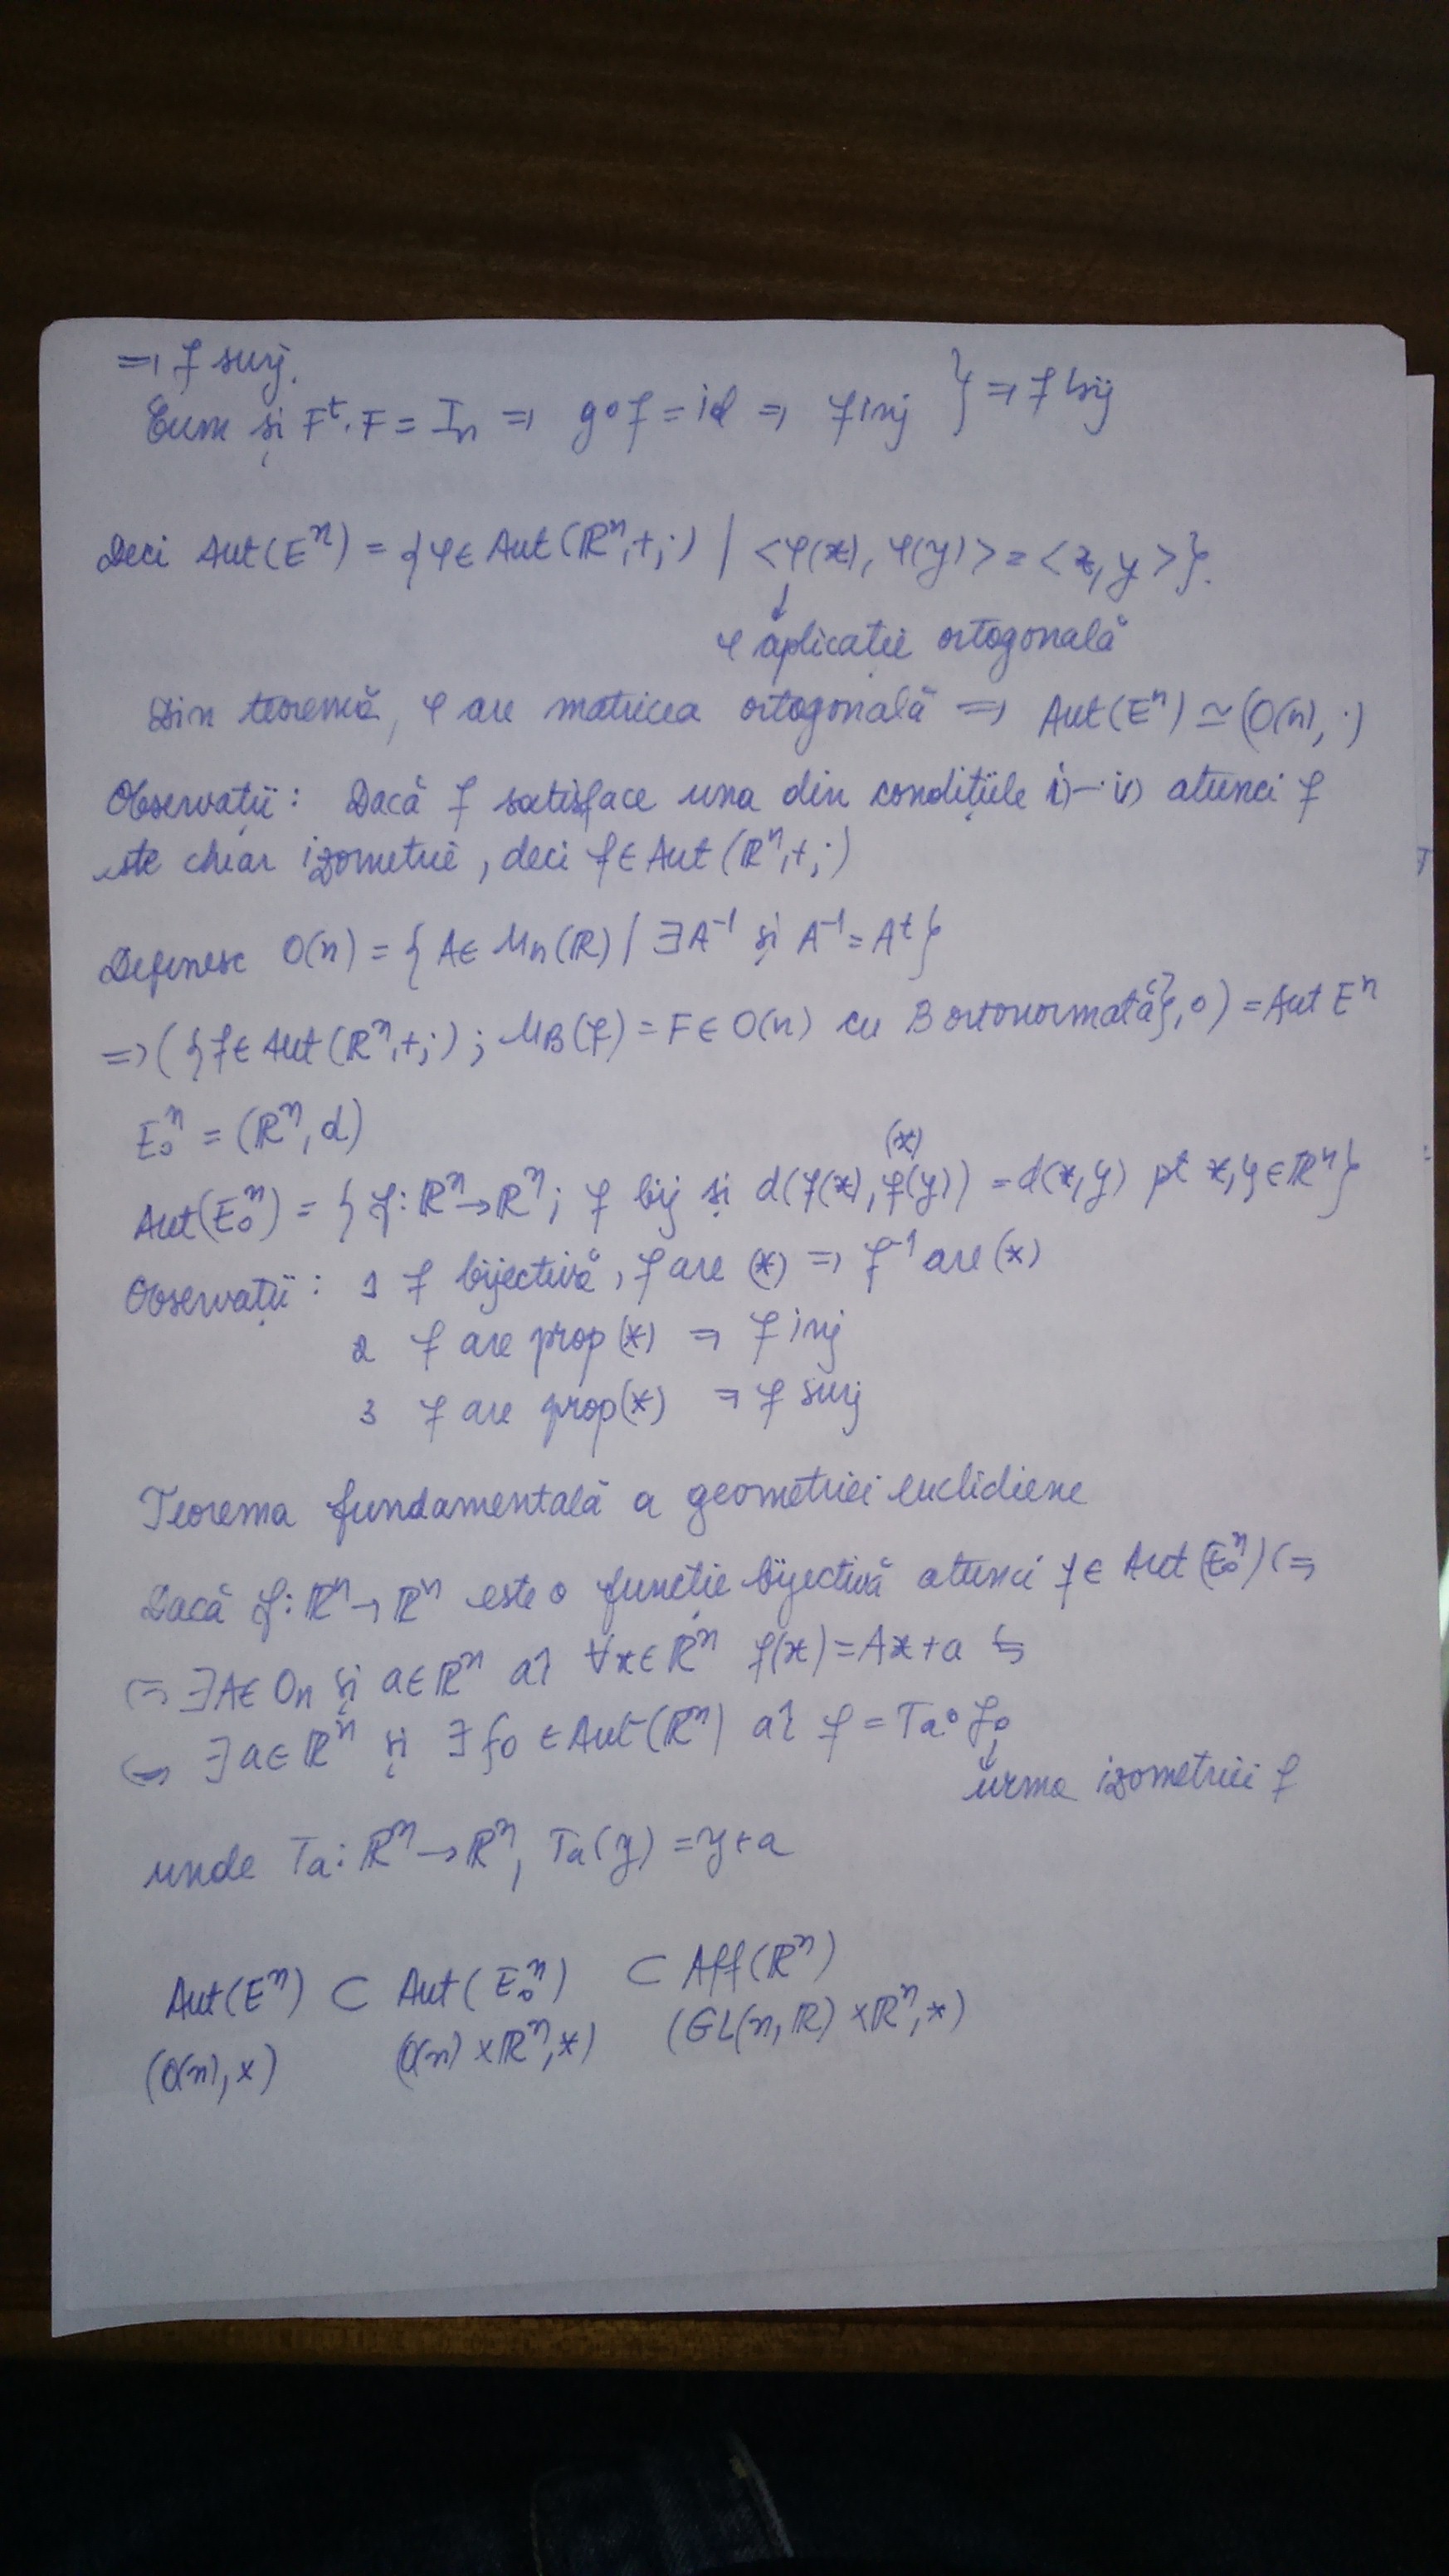 => f surj.
Cum și Fᵗ·F = Iₙ => g∘f = id => f inj } => f bij
Deci Aut(Eⁿ) = {φ ∈ Aut(ℝⁿ,+,·) / <φ(x), φ(y)> = <x, y>}.
↓
φ aplicație ortogonală
Din teoremă, φ are matricea ortogonală => Aut(Eⁿ) ≃ (O(n), ·)
Observații: Dacă f satisface una din condițiile i)-iv) atunci f
este chiar izometrie, deci f ∈ Aut(ℝⁿ,+,·)
Definesc O(n) = {A ∈ Mn(ℝ) / ∃A⁻¹ și A⁻¹ = Aᵗ}
=> ({f ∈ Aut(ℝⁿ,+,·); M_B(f) = F ∈ O(n) cu B ortonormată}, ∘) = Aut Eⁿ
E₀ⁿ = (ℝⁿ, d)
(*)
Aut(E₀ⁿ) = {f: ℝⁿ → ℝⁿ; f bij și d(f(x), f(y)) = d(x,y) pt x,y ∈ ℝⁿ}
Observații: 1 f bijectivă, f are (*) => f⁻¹ are (*)
2 f are prop(*) => f inj
3 f are prop(*) => f surj
Teorema fundamentală a geometriei euclidiene
Dacă f: ℝⁿ → ℝⁿ este o funcție bijectivă atunci f ∈ Aut(E₀ⁿ) <=>
<=> ∃A ∈ On și a ∈ ℝⁿ aî ∀x ∈ ℝⁿ f(x) = Ax + a <=>
<=> ∃a ∈ ℝⁿ și ∃f₀ ∈ Aut(ℝⁿ) aî f = Ta∘f₀
↓
urma izometriei f
unde Ta: ℝⁿ → ℝⁿ, Ta(y) = y + a
Aut(Eⁿ) ⊂ Aut(E₀ⁿ) ⊂ Aff(ℝⁿ)
(O(n), x) (O(n) x ℝⁿ, *) (GL(n, ℝ) x ℝⁿ, *)